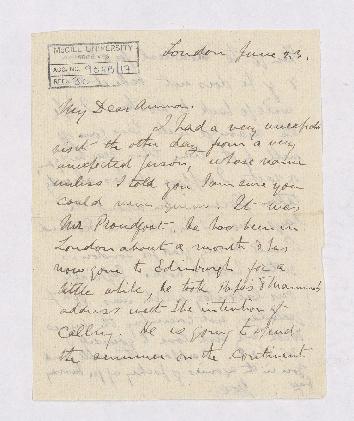 McGILL UNIVERSITY
ARCHIVES
ACC. NO.
REF.
London June 23.
My Dear Amma.
I had a very unexpected
visit the other day from a very
unexpected person, whose name
unless I told you I am sure you
could never guess. It was
Mr Proudfoot. he has been in
London about a month & has
now gone to Edinburgh for a
little while, he took Papa's & Mamma's
address with the intention of
calling. He is going to spend
the summer on the Continent